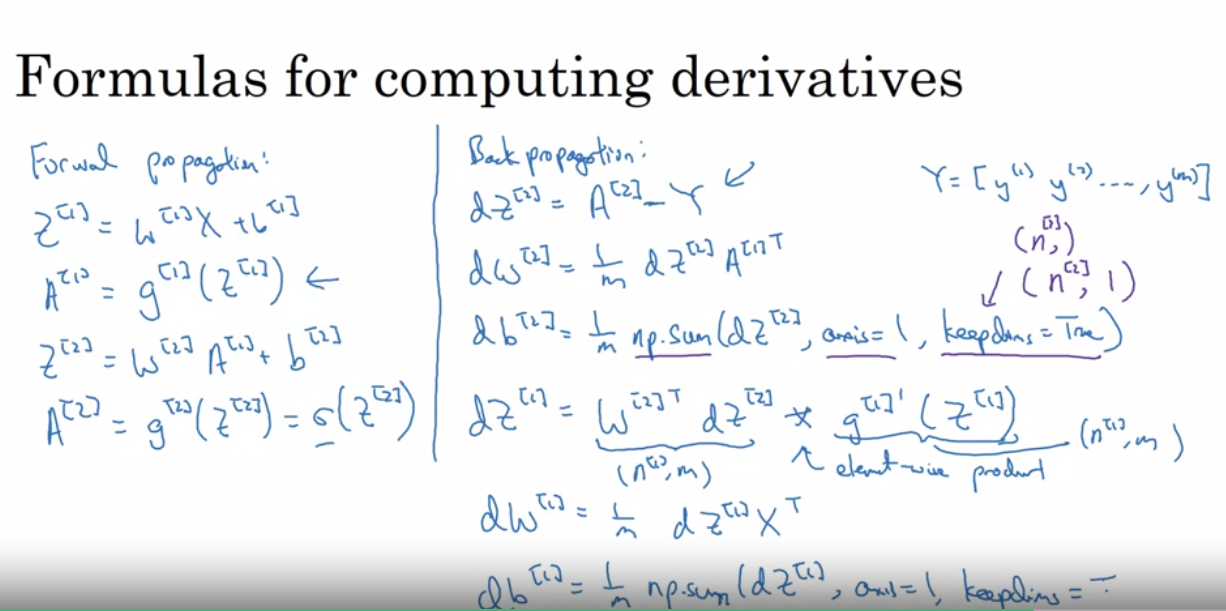 Formulas for computing derivatives
Forward propagation:
Z^[1] = W^[1]X + b^[1]
A^[1] = g^[1](Z^[1]) ←
Z^[2] = W^[2] A^[1] + b^[2]
A^[2] = g^[2](Z^[2]) = σ(Z^[2])
Back propagation:
dZ^[2] = A^[2] - Y ↙
dW^[2] = 1/m dZ^[2] A^[1]T
db^[2] = 1/m np.sum(dZ^[2], axis=1, keepdims=True)
dZ^[1] = W^[2]T dZ^[2] * g^[1]'(Z^[1])
(n^[1], m) ↖ element-wise product (n^[1], m)
dW^[1] = 1/m dZ^[1] X^T
db^[1] = 1/m np.sum(dZ^[1], axis=1, keepdims=T
Y = [y^(1) y^(2) ...., y^(m)]
(n^[2],)
↙ (n^[2], 1)